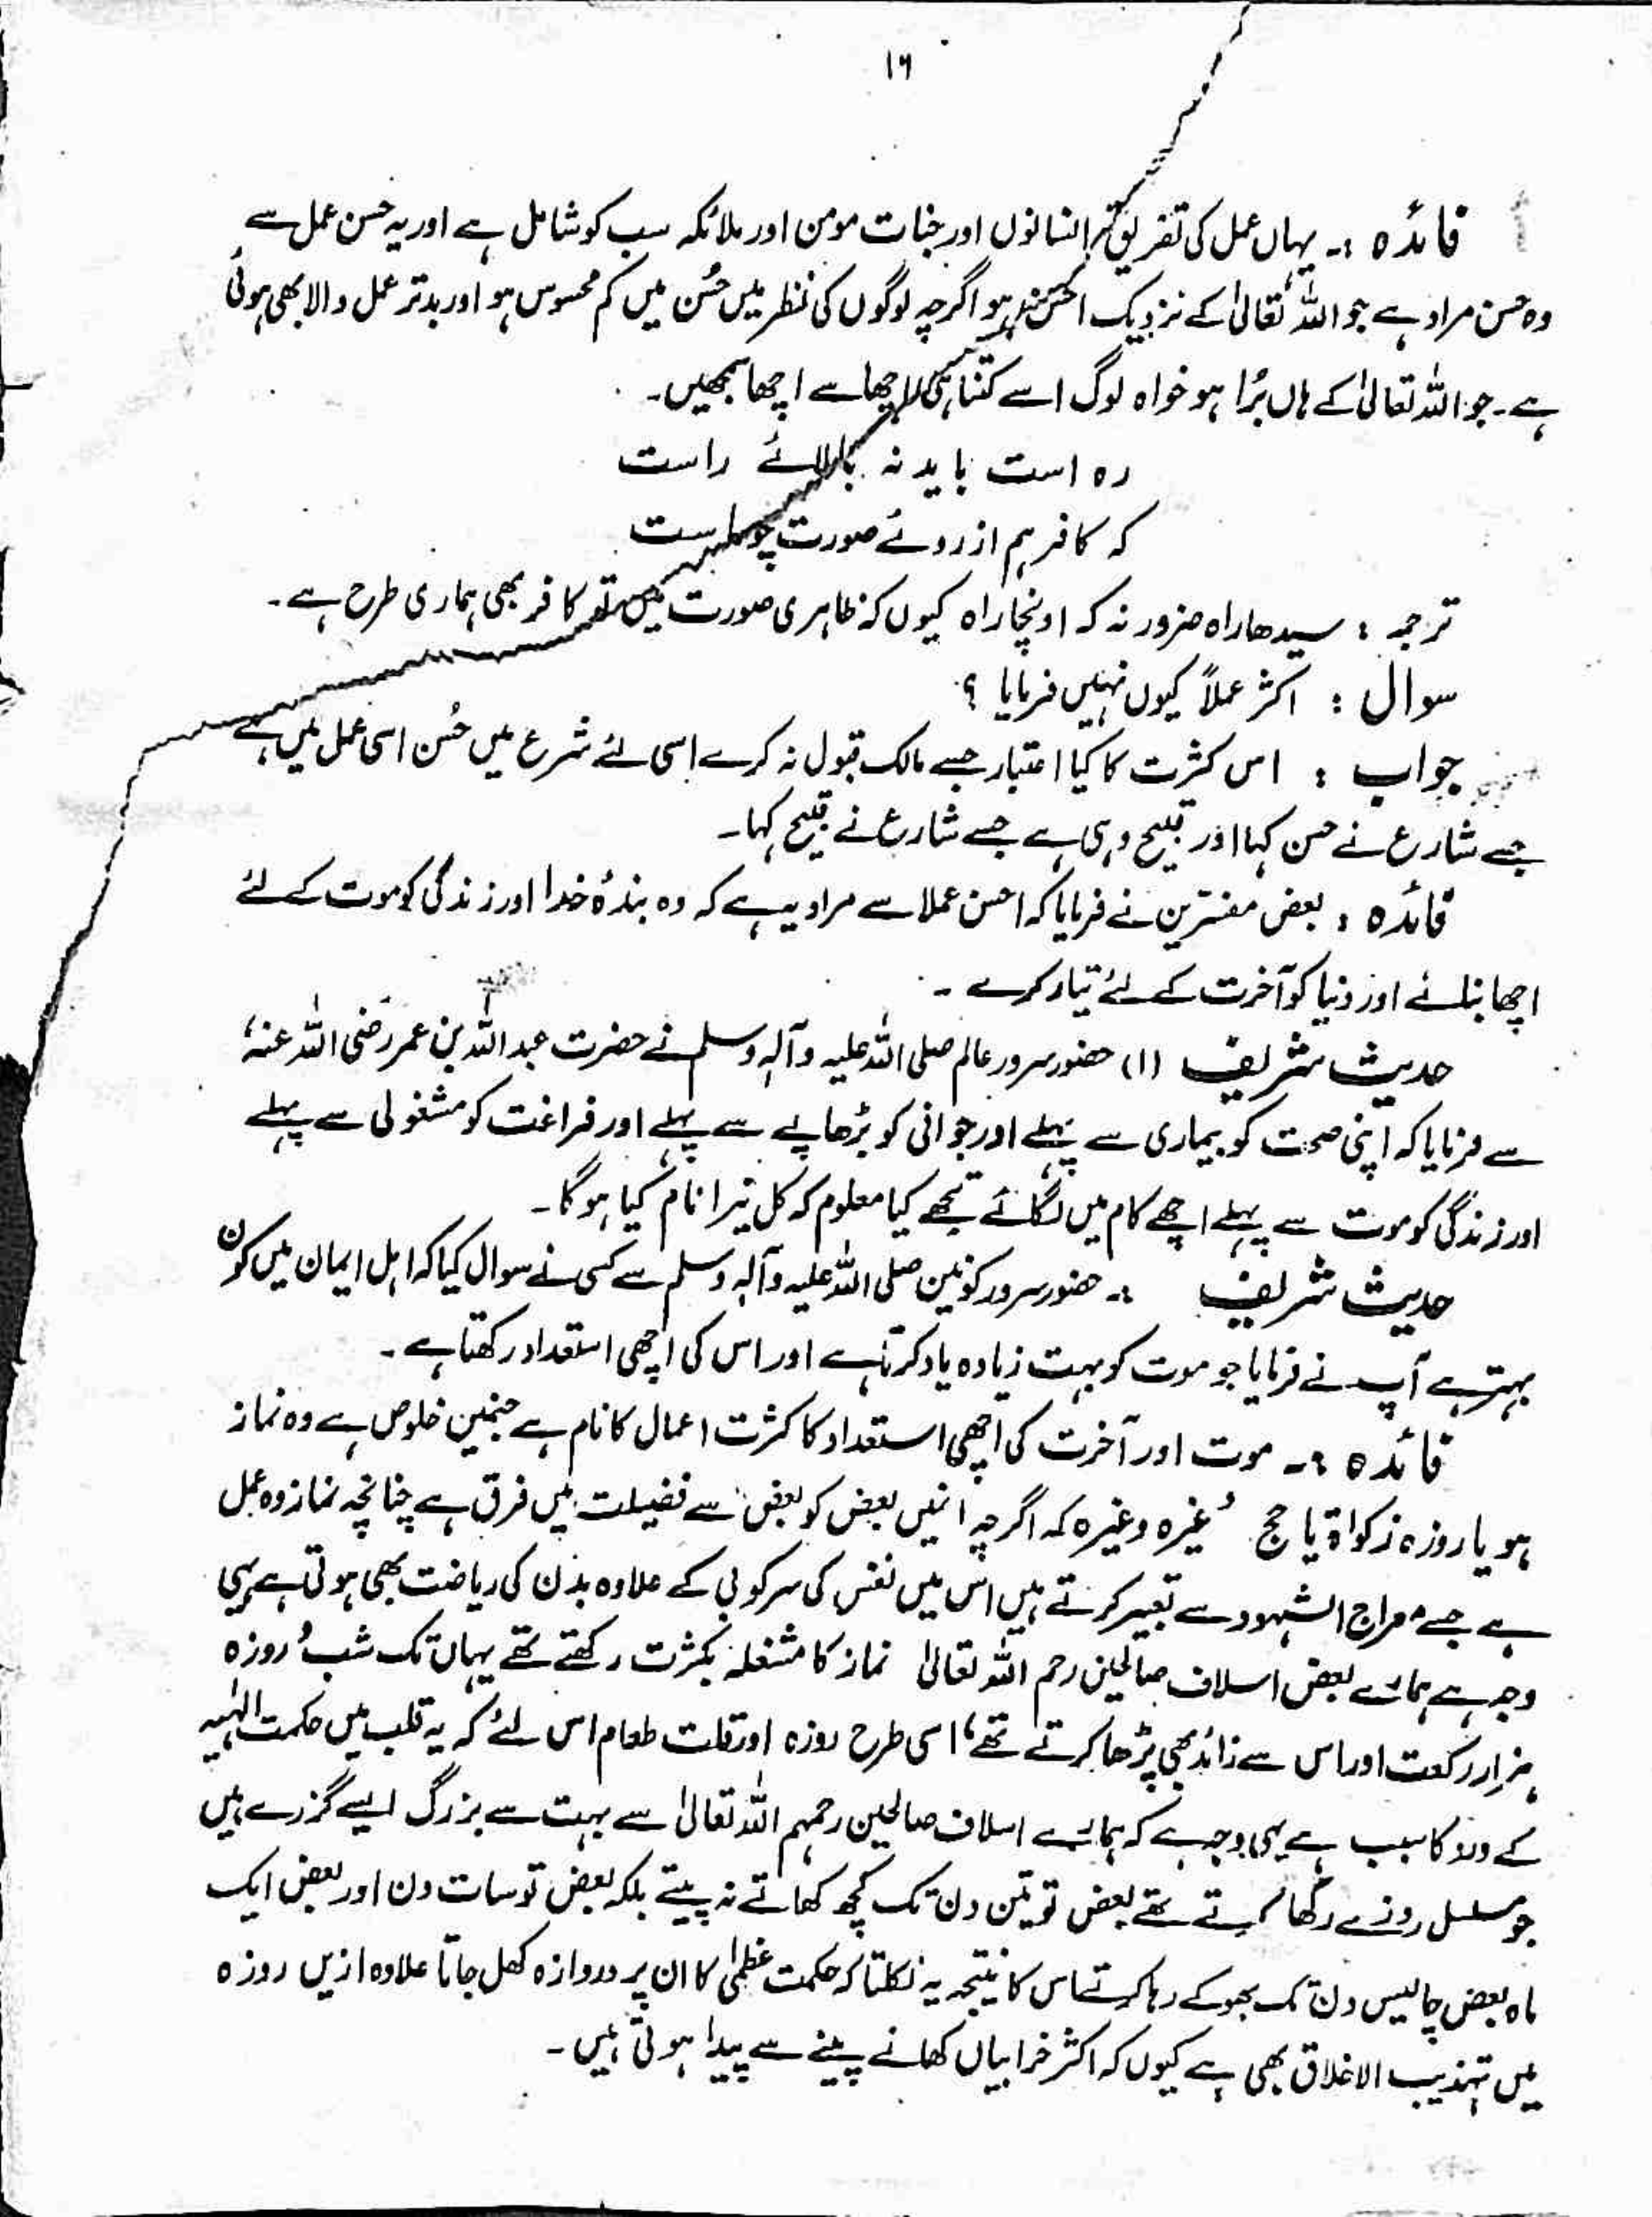 ۱۶
فائدہ :۔ یہاں عمل کی تفریق انسانوں اور جنات مومن اور ملائکہ سب کو شامل ہے اور یہ حسن عمل سے
وہ حسن مراد ہے جو اللہ تعالیٰ کے نزدیک احسن ہو اگرچہ لوگوں کی نظر میں حُسن میں کم محسوس ہو اور بدتر عمل والا بھی ہوئی
ہے۔ جو اللہ تعالیٰ کے ہاں بُرا ہو خواہ لوگ اسے کتنا ہی اچھا سے اچھا سمجھیں۔
رہ است باید نہ بالائے راست
کہ کافر ہم از روئے صورت چو ماست
ترجمہ : سیدھا راہ ضرور نہ کہ اونچا راہ کیوں کہ ظاہری صورت میں تو کافر بھی ہماری طرح ہے۔
سوال : اکثر عملاً کیوں نہیں فرمایا ؟
جواب : اس کثرت کا کیا اعتبار جسے مالک قبول نہ کرے اسی لئے شرع میں حُسن اسی عمل میں ہے
جسے شارع نے حسن کہا اور قبیح وہی ہے جسے شارع نے قبیح کہا۔
فائدہ : بعض مفسّرین نے فرمایا کہ احسن عملا سے مراد یہ ہے کہ وہ بندۂ خدا اور زندگی کو موت کے لئے
اچھا بنائے اور دنیا کو آخرت کے لئے تیار کرے ۔
حدیث شریف (۱) حضور سرور عالم صلی اللہ علیہ وآلہٖ وسلم نے حضرت عبداللہ بن عمر رضی اللہ عنہٗ
سے فرمایا کہ اپنی صحت کو بیماری سے پہلے اور جوانی کو بڑھاپے سے پہلے اور فراغت کو مشغولی سے پہلے
اور زندگی کو موت سے پہلے اچھے کام میں لگائے تجھے کیا معلوم کہ کل تیرا نام کیا ہوگا۔
حدیث شریف :۔ حضور سرور کونین صلی اللہ علیہ وآلہٖ وسلم سے کسی نے سوال کیا کہ اہل ایمان میں کون
بہتر ہے آپ نے فرمایا جو موت کو بہت زیادہ یاد کرتا ہے اور اس کی اچھی استعداد رکھتا ہے ۔
فائدہ :۔ موت اور آخرت کی اچھی استعداد کا کثرت اعمال کا نام ہے جنمیں خلوص ہے وہ نماز
ہو یا روزہ زکواۃ یا حج ُ غیرہ وغیرہ کہ اگرچہ انمیں بعض کو بعض سے فضیلت میں فرق ہے چنانچہ نماز وہ عمل
ہے جسے معراج الشہود سے تعبیر کرتے ہیں اس میں نفس کی سرکوبی کے علاوہ بدن کی ریاضت بھی ہوتی ہے یہی
وجہ ہے ہمارے بعض اسلاف صالحین رحم اللہ تعالیٰ نماز کا مشغلہ بکثرت رکھتے تھے یہاں تک شب ُ روزہ
ہزار رکعت اور اس سے زائد بھی پڑھا کرتے تھے، اسی طرح روزہ اور قلت طعام اس لئے کہ یہ قلب میں حکمت الہٰیہ
کے ورود کا سبب ہے یہی وجہ ہے کہ ہمارے اسلاف صالحین رحمہم اللہ تعالیٰ سے بہت سے بزرگ ایسے گزرے ہیں
جو مسلسل روزے رکھا کرتے تھے بعض تو تین دن تک کچھ کھاتے نہ پیتے بلکہ بعض تو سات دن اور بعض ایک
ماہ بعض چالیس دن تک بھوکے رہا کرتے اس کا نتیجہ یہ نکلتا کہ حکمت عظمیٰ کا ان پر دروازہ کھل جاتا علاوہ ازیں روزہ
میں تہذیب الاخلاق بھی ہے کیوں کہ اکثر خرابیاں کھانے پینے سے پیدا ہوتی ہیں ۔